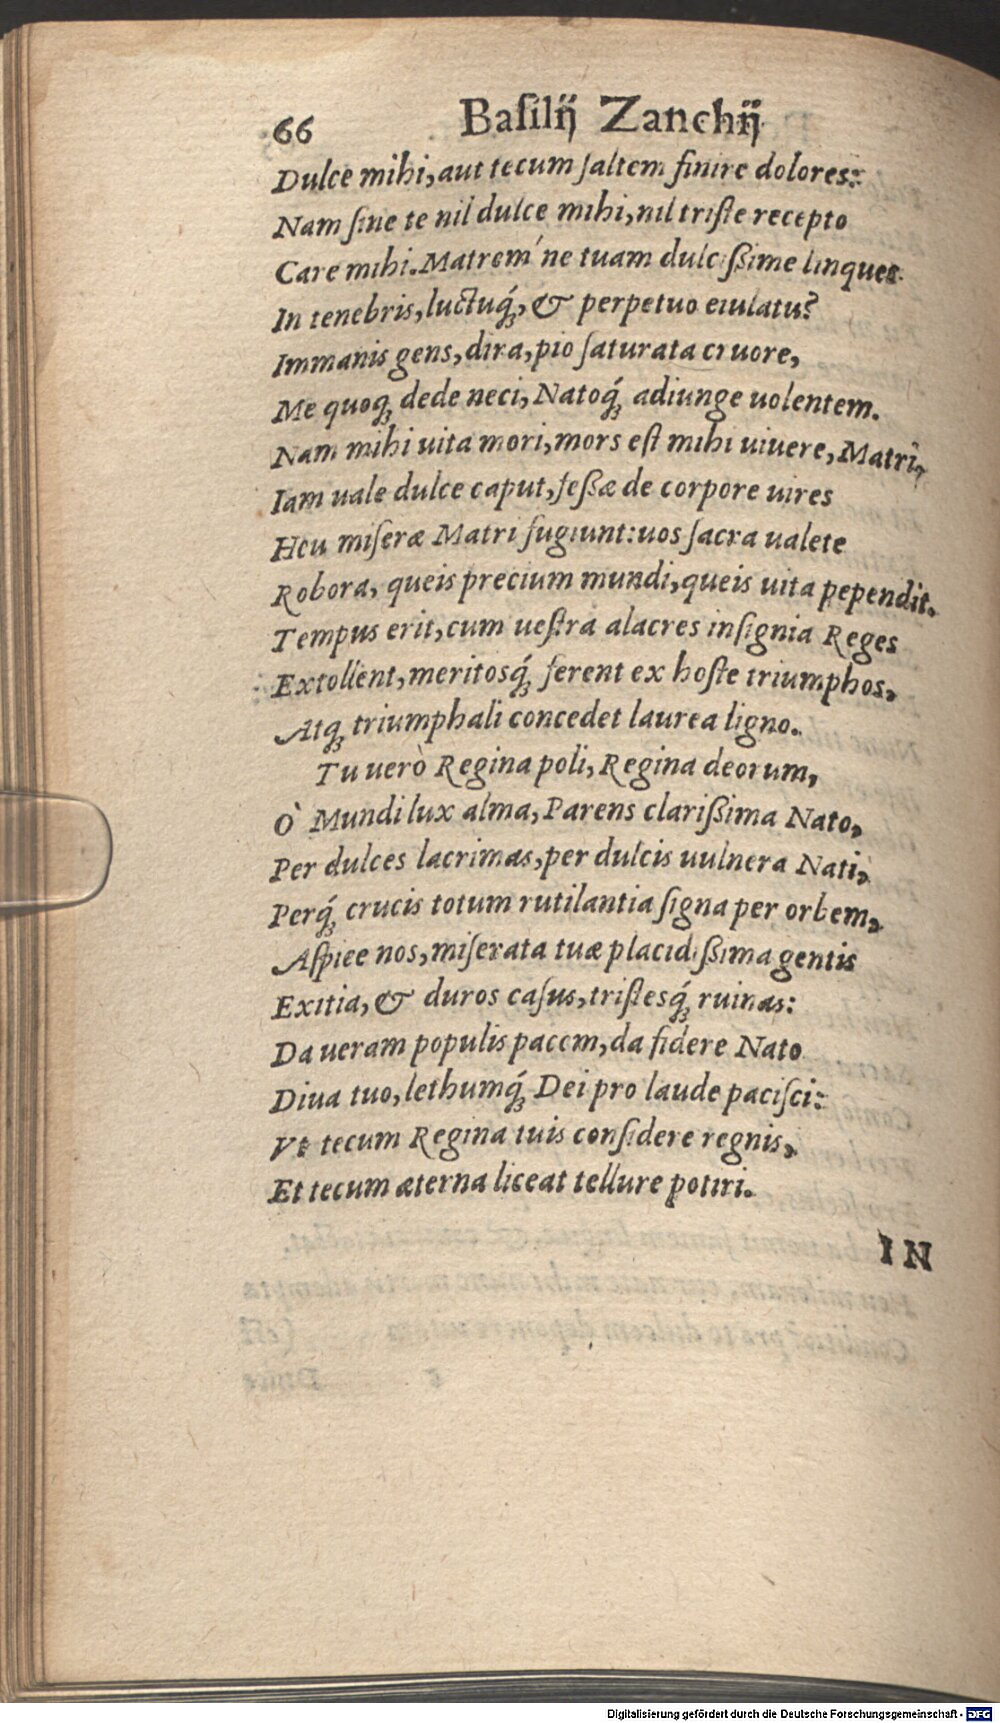 66 Baſilij Zanchij
Dulce mihi, aut tecum ſaltem finire dolores:
Nam ſine te nil dulce mihi, nil triſte recepto
Care mihi. Matrem´ne tuam dulcißime linques
In tenebris, luctuq́;, & perpetuo eiulatu?
Immanis gens, dira, pio ſaturata cruore,
Me quoq; dede neci, Natoq́; adiunge uolentem.
Nam mihi uita mori, mors eſt mihi uiuere, Matri,
Iam uale dulce caput, feßæ de corpore uires
Heu miſeræ Matri fugiunt: uos ſacra ualete
Robora, queis precium mundi, queis uita pependit.
Tempus erit, cum ueſtra alacres inſignia Reges
Extollent, meritosq́; ferent ex hoſte triumphos,
Atq; triumphali concedet laurea ligno.
Tu uerò Regina poli, Regina deorum,
Ò Mundi lux alma, Parens clarißima Nato,
Per dulces lacrimas, per dulcis uulnera Nati,
Perq́; crucis totum rutilantia ſigna per orbem,
Aſpice nos, miſerata tuæ placidißima gentis
Exitia, & duros caſus, triſtesq́; ruinas:
Da ueram populis pacem, da fidere Nato
Diua tuo, lethumq́; Dei pro laude paciſci:
Vt tecum Regina tuis conſidere regnis,
Et tecum æterna liceat tellure potiri.
IN
Digitalisierung gefördert durch die Deutsche Forschungsgemeinschaft - DFG